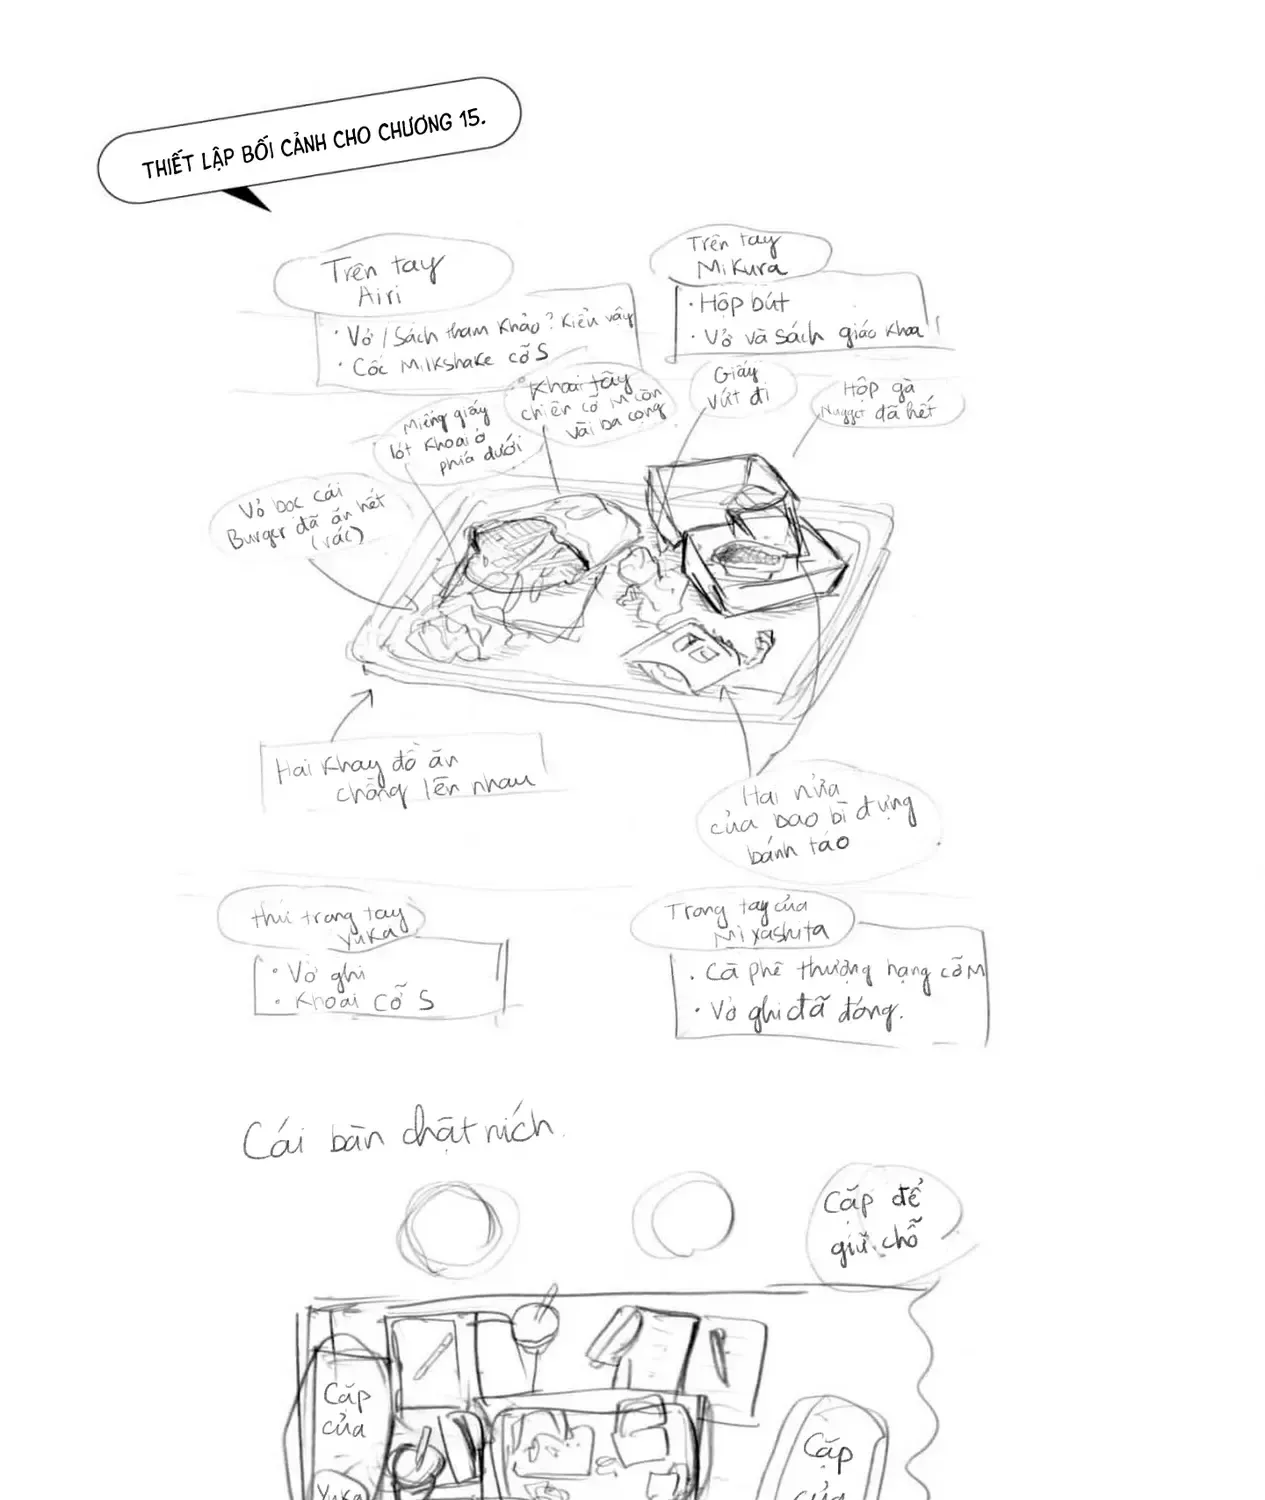 THIẾT LẬP BỐI CẢNH CHO CHƯƠNG 15.
Trên tay
Airi
• Vở / Sách tham khảo? Kiểu vậy
• Cốc Milkshake cỡ S
Trên tay
Mikura
• Hộp bút
• Vở và sách giáo khoa
Miếng giấy
lót khoai ở
phía dưới
Khoai tây
chiên cỡ M còn
vài ba cọng
Giấy
vứt đi
Hộp gà
Nugget đã hết
Vỏ bọc cái
Burger đã ăn hết
(rác)
Hai khay đồ ăn
chồng lên nhau
Hai nửa
của bao bì đựng
bánh táo
thứ trong tay
Yuka
• Vở ghi
• Khoai cỡ S
Trong tay của
Miyashita
• Cà phê thượng hạng cỡ M
• Vở ghi đã đóng.
Cái bàn chật ních.
Cặp để
giữ chỗ
Cặp
của
Yuka
Cặp
của